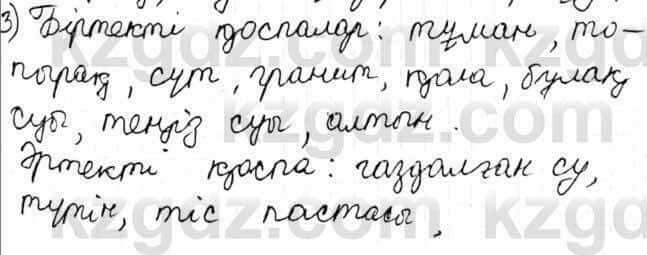 3) Біртекті қоспалар: тұман, то-
пырақ, сүт, гранит, қола, бұлақ
суы, теңіз суы, алтын.
Әртекті қоспа: газдалған су,
түтін, тіс пастасы,
kzgdz.com